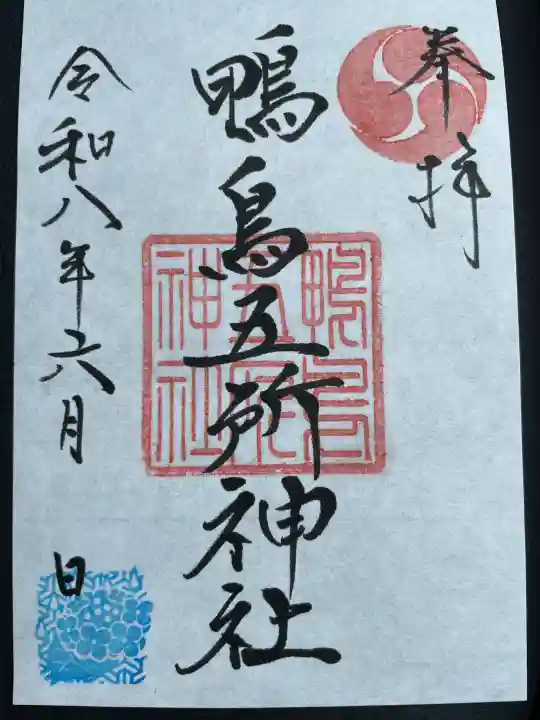 奉拝
鴨鳥五所神社
令和八年六月 日
鴨鳥五所神社